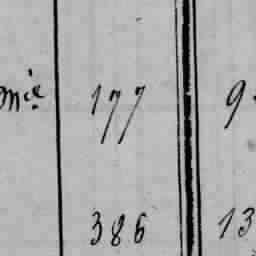 mie 177 9
386 13